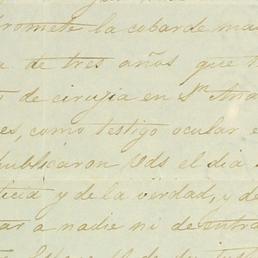 promete la cobarde ma
a de tres años que
de cirujia en Sn. Ana
es, como testigo ocular e
publicaron Uds el dia
ticia y de la verdad, y de
ar a nadie ni de entra